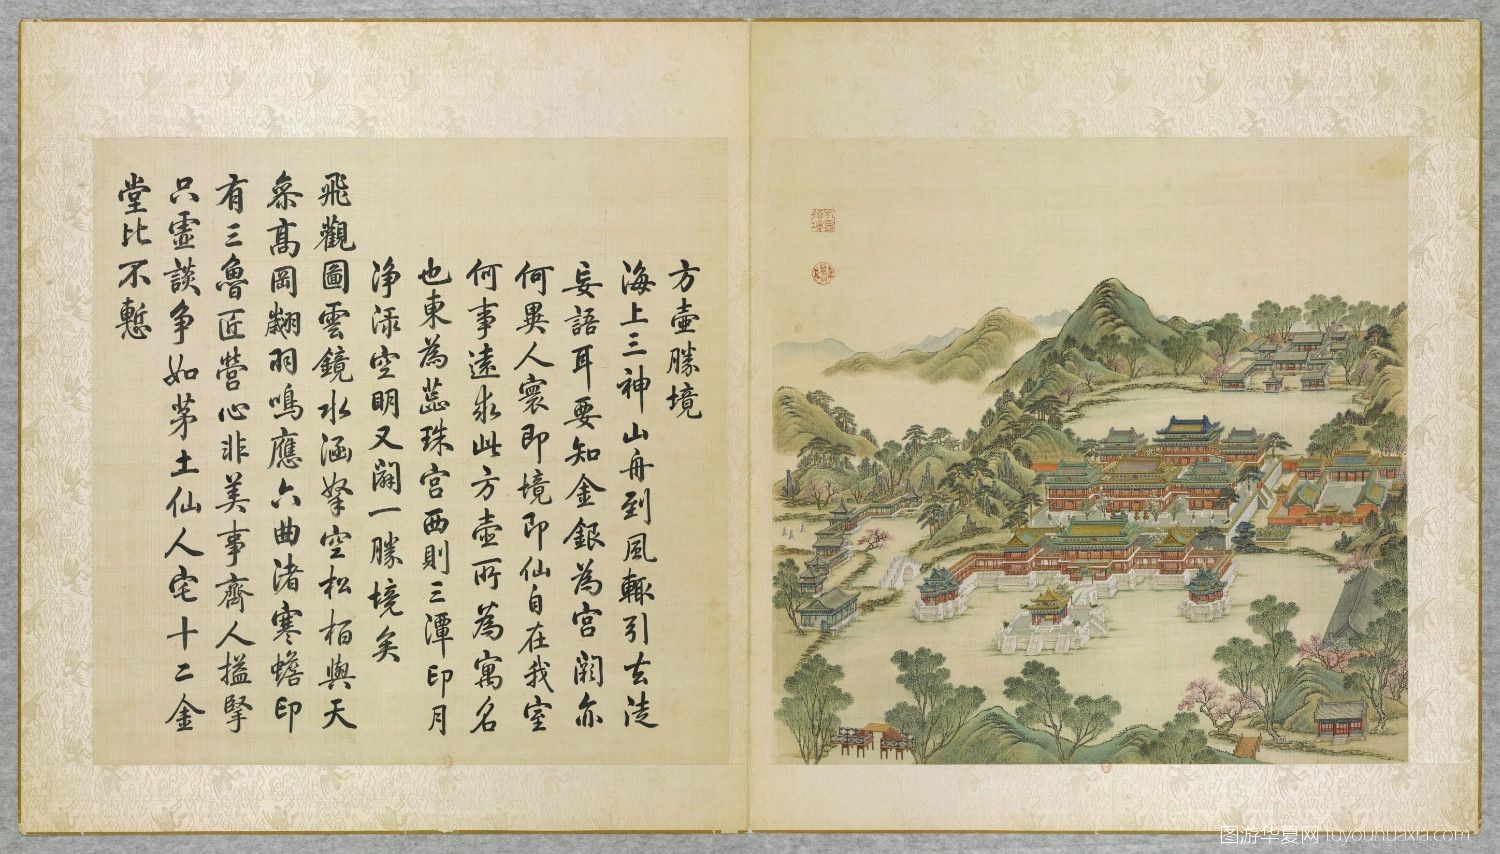 方壺勝境
海上三神山舟到風輙引去徒
妄語耳要知金銀為宮闕亦
何異人寰即境即仙自在我室
何事遠求此方壺所為寓名
也東為蕊珠宮西則三潭印月
淨淥空明又闢一勝境矣
飛觀圖雲鏡水涵拏空松栢與天
叅高岡翽羽鳴應六曲渚寒蟾印
有三魯匠營心非美事齊人搤掔
只虛談爭如茅土仙人宅十二金
堂比不慙
图游华夏网 tuyouhuaxia.com